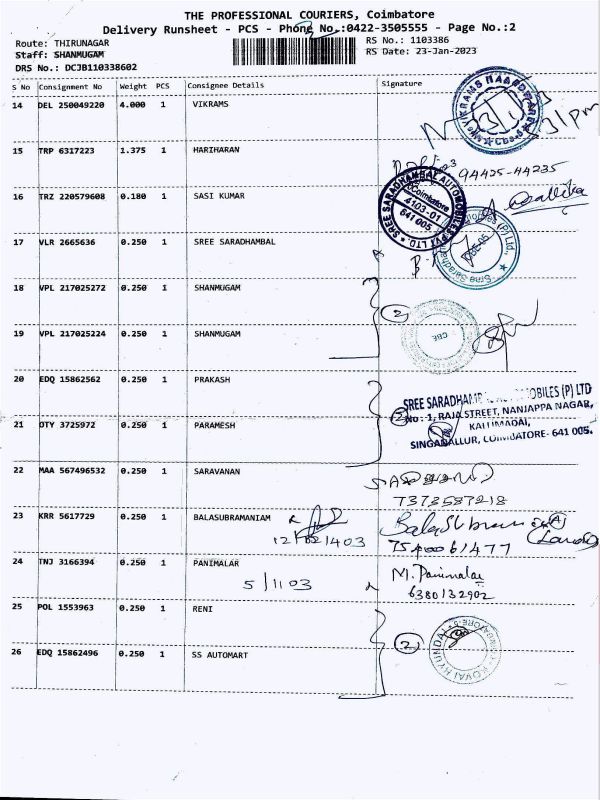 THE PROFESSIONAL COURIERS, Coimbatore
Delivery Runsheet - PCS - Phone No.:0422-3505555 - Page No.:2
Route: THIRUNAGAR
RS No.: 1103386
Staff: SHANMUGAM
RS Date: 23-Jan-2023
DRS No.: DCJB110338602
S No Consignment No Weight PCS Consignee Details Signature
14 DEL 250049220 4.000 1 VIKRAMS
15 TRP 6317223 1.375 1 HARIHARAN
94425-44235
16 TRZ 220579608 0.180 1 SASI KUMAR
SREE SARADHAMBAL AUTOMOBILES PVT LTD
Coimbatore
4103-01
641 005.
17 VLR 2665636 0.250 1 SREE SARADHAMBAL
18 VPL 217025272 0.250 1 SHANMUGAM
2
CBE
19 VPL 217025224 0.250 1 SHANMUGAM
20 EDQ 15862562 0.250 1 PRAKASH
SREE SARADHAMB AUTOMOBILES (P) LTD
No : 1, RAJA STREET, NANJAPPA NAGAR,
21 OTY 3725972 0.250 1 PARAMESH
SINGANALLUR, COIMBATORE- 641 005.
22 MAA 567496532 0.250 1 SARAVANAN
7373587218
23 KRR 5617729 0.250 1 BALASUBRAMANIAM
24 TNJ 3166394 0.250 1 PANIMALAR
M. Panimalar
5/1103
6380132902
25 POL 1553963 0.250 1 RENI
2
KOVAI HYUNDAI
26 EDQ 15862496 0.250 1 SS AUTOMART